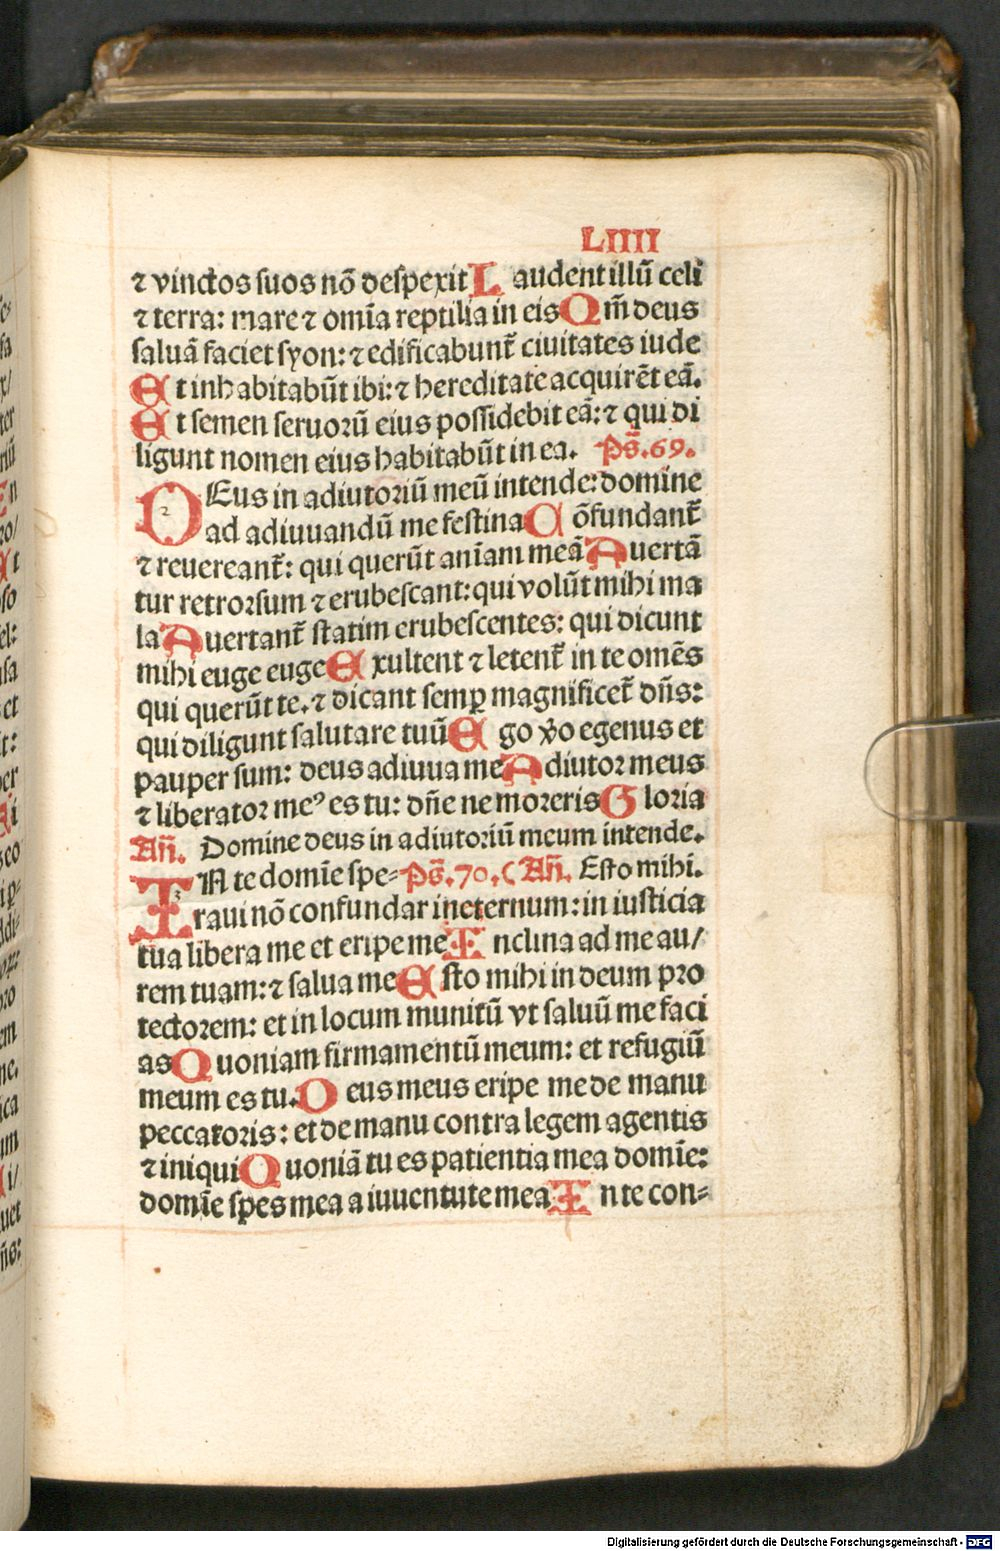 LIIII
⁊ vinctos suos nō despexit Laudent illū celi
⁊ terra: mare ⁊ omīa reptilia in eis Qm̄ deus
saluā faciet syon: ⁊ edificabunt̄ ciuitates iude
Et inhabitabūt ibi: ⁊ hereditate acquirēt eā.
Et semen seruoꝛū eius possidebit eā: ⁊ qui di
ligunt nomen eius habitabūt in ea. Ps̄.69.
DEus in adiutoꝛiū meū intende: domine
ad adiuuandū me festina Cōfundant̄
⁊ reuereant̄: qui querūt anīam meā Auertā
tur retroꝛsum ⁊ erubescant: qui volūt mihi ma
la Auertant̄ statim erubescentes: qui dicunt
mihi euge euge Exultent ⁊ letent̄ in te omēs
qui querūt te. ⁊ dicant semꝑ magnificet̄ dn̄s:
qui diligunt salutare tuū Ego v̄o egenus et
pauper sum: deus adiuua me Adiutoꝛ meus
⁊ liberatoꝛ meꝰ es tu: dn̄e ne moꝛeris Gloria
An̄. Domine deus in adiutoꝛiū meum intende.
IN te domīe spe= Ps̄.70. An̄. Esto mihi.
raui nō confundar in eternum: in iusticia
tua libera me et eripe me Inclina ad me au/
rem tuam: ⁊ salua me Esto mihi in deum pro
tectorem: et in locum munitū vt saluū me faci
as Quoniam firmamentū meum: et refugiū
meum es tu. Deus meus eripe me de manu
peccatoꝛis: et de manu contra legem agentis
⁊ iniqui Quoniā tu es patientia mea domīe:
domīe spes mea a iuuentute mea In te con=
Digitalisierung gefördert durch die Deutsche Forschungsgemeinschaft - DFG